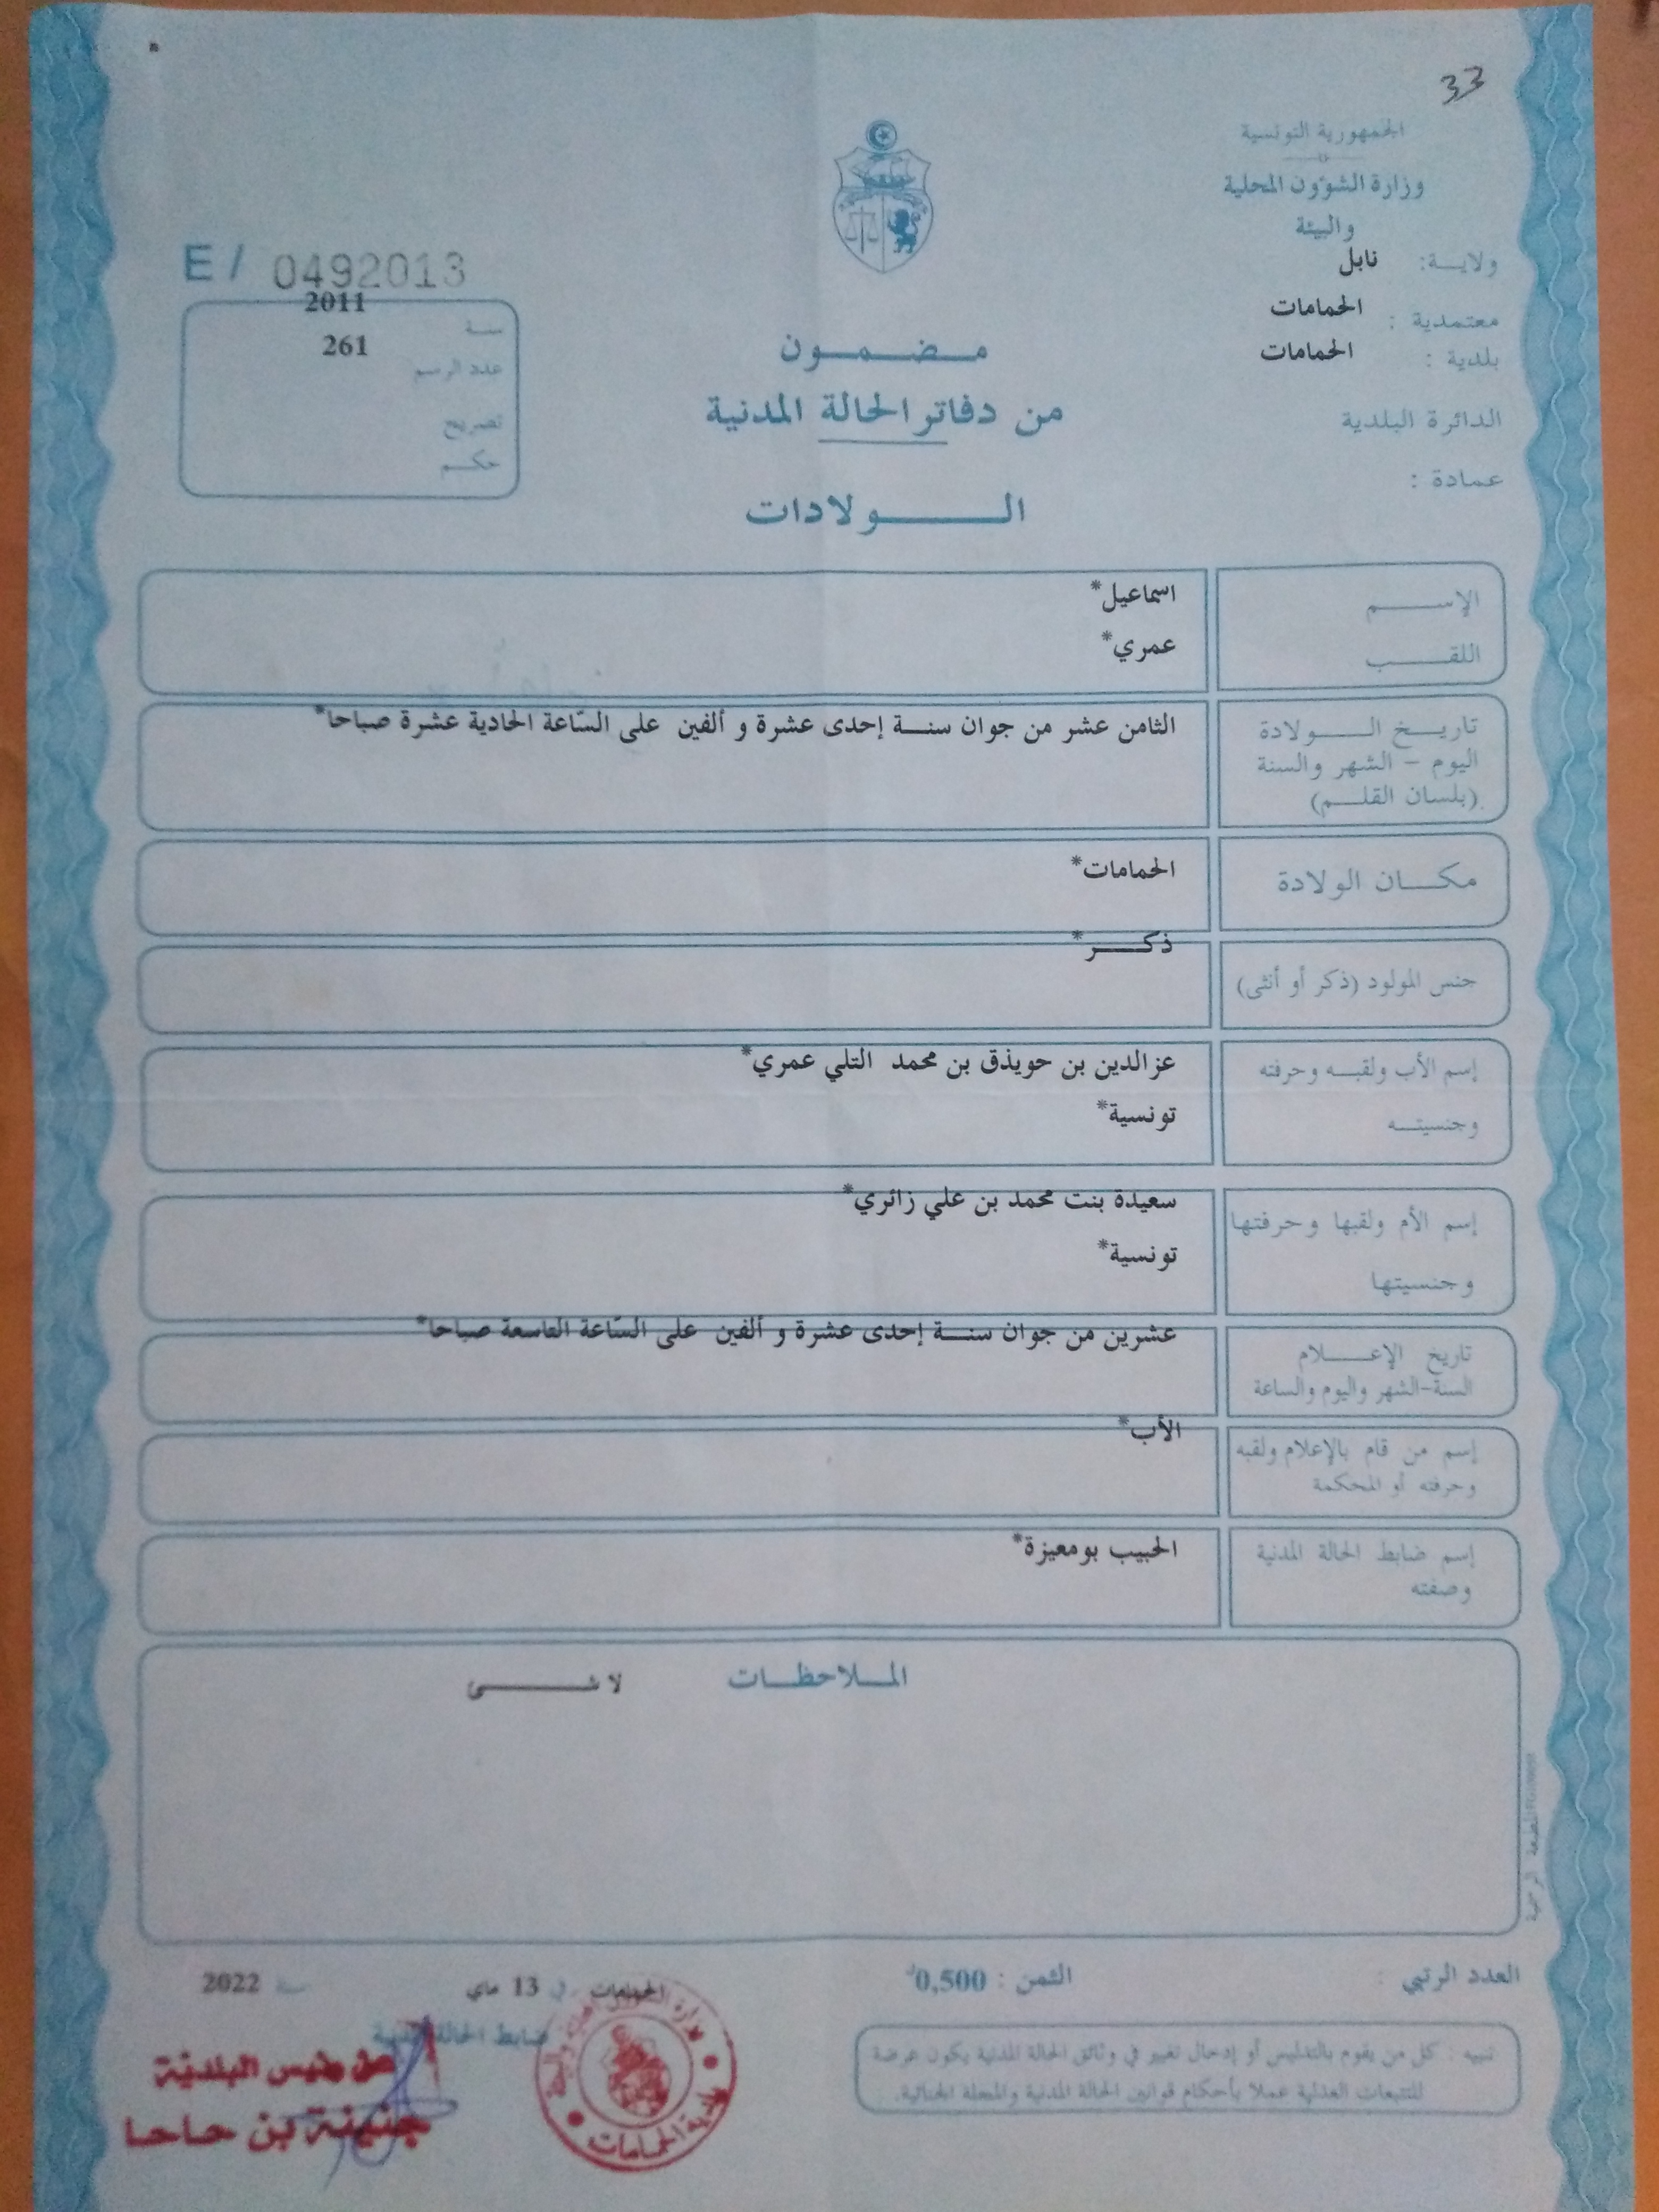 33
الجمهورية التونسية
وزارة الشؤون المحلية
والبيئة
ولاية: نابل
معتمدية : الحمامات
بلدية : الحمامات
الدائرة البلدية
عمادة :
E / 0492013
سنة 2011
عدد الرسم 261
تصريح
حكم
مضمون
من دفاتر الحالة المدنية
الولادات
الإسم اسماعيل*
اللقب عمري*
تاريخ الولادة الثامن عشر من جوان سنة إحدى عشرة و ألفين على السّاعة الحادية عشرة صباحا*
اليوم - الشهر والسنة
(بلسان القلم)
مكان الولادة الحمامات*
جنس المولود (ذكر أو أنثى) ذكر*
إسم الأب ولقبه وحرفته عزالدين بن حويذق بن محمد التلي عمري*
وجنسيته تونسية*
إسم الأم ولقبها وحرفتها سعيدة بنت محمد بن علي زائري*
وجنسيتها تونسية*
تاريخ الإعلام عشرين من جوان سنة إحدى عشرة و ألفين على السّاعة التاسعة صباحا*
السنة-الشهر واليوم والساعة
إسم من قام بالإعلام ولقبه الأب*
وحرفته أو المحكمة
إسم ضابط الحالة المدنية الحبيب بومعيزة*
وصفته
الملاحظات لا شئ
المطبعة الرسمية
العدد الرتبي :
الثمن : 0,500د
الحمامات في 13 ماي سنة 2022
ضابط الحالة المدنية
عن رئيس البلدية
جنينة بن حاحا
بلدية الحمامات
تنبيه : كل من يقوم بالتدليس أو إدخال تغيير في وثائق الحالة المدنية يكون عرضة
للتتبعات العدلية عملا بأحكام قوانين الحالة المدنية والمجلة الجنائية.